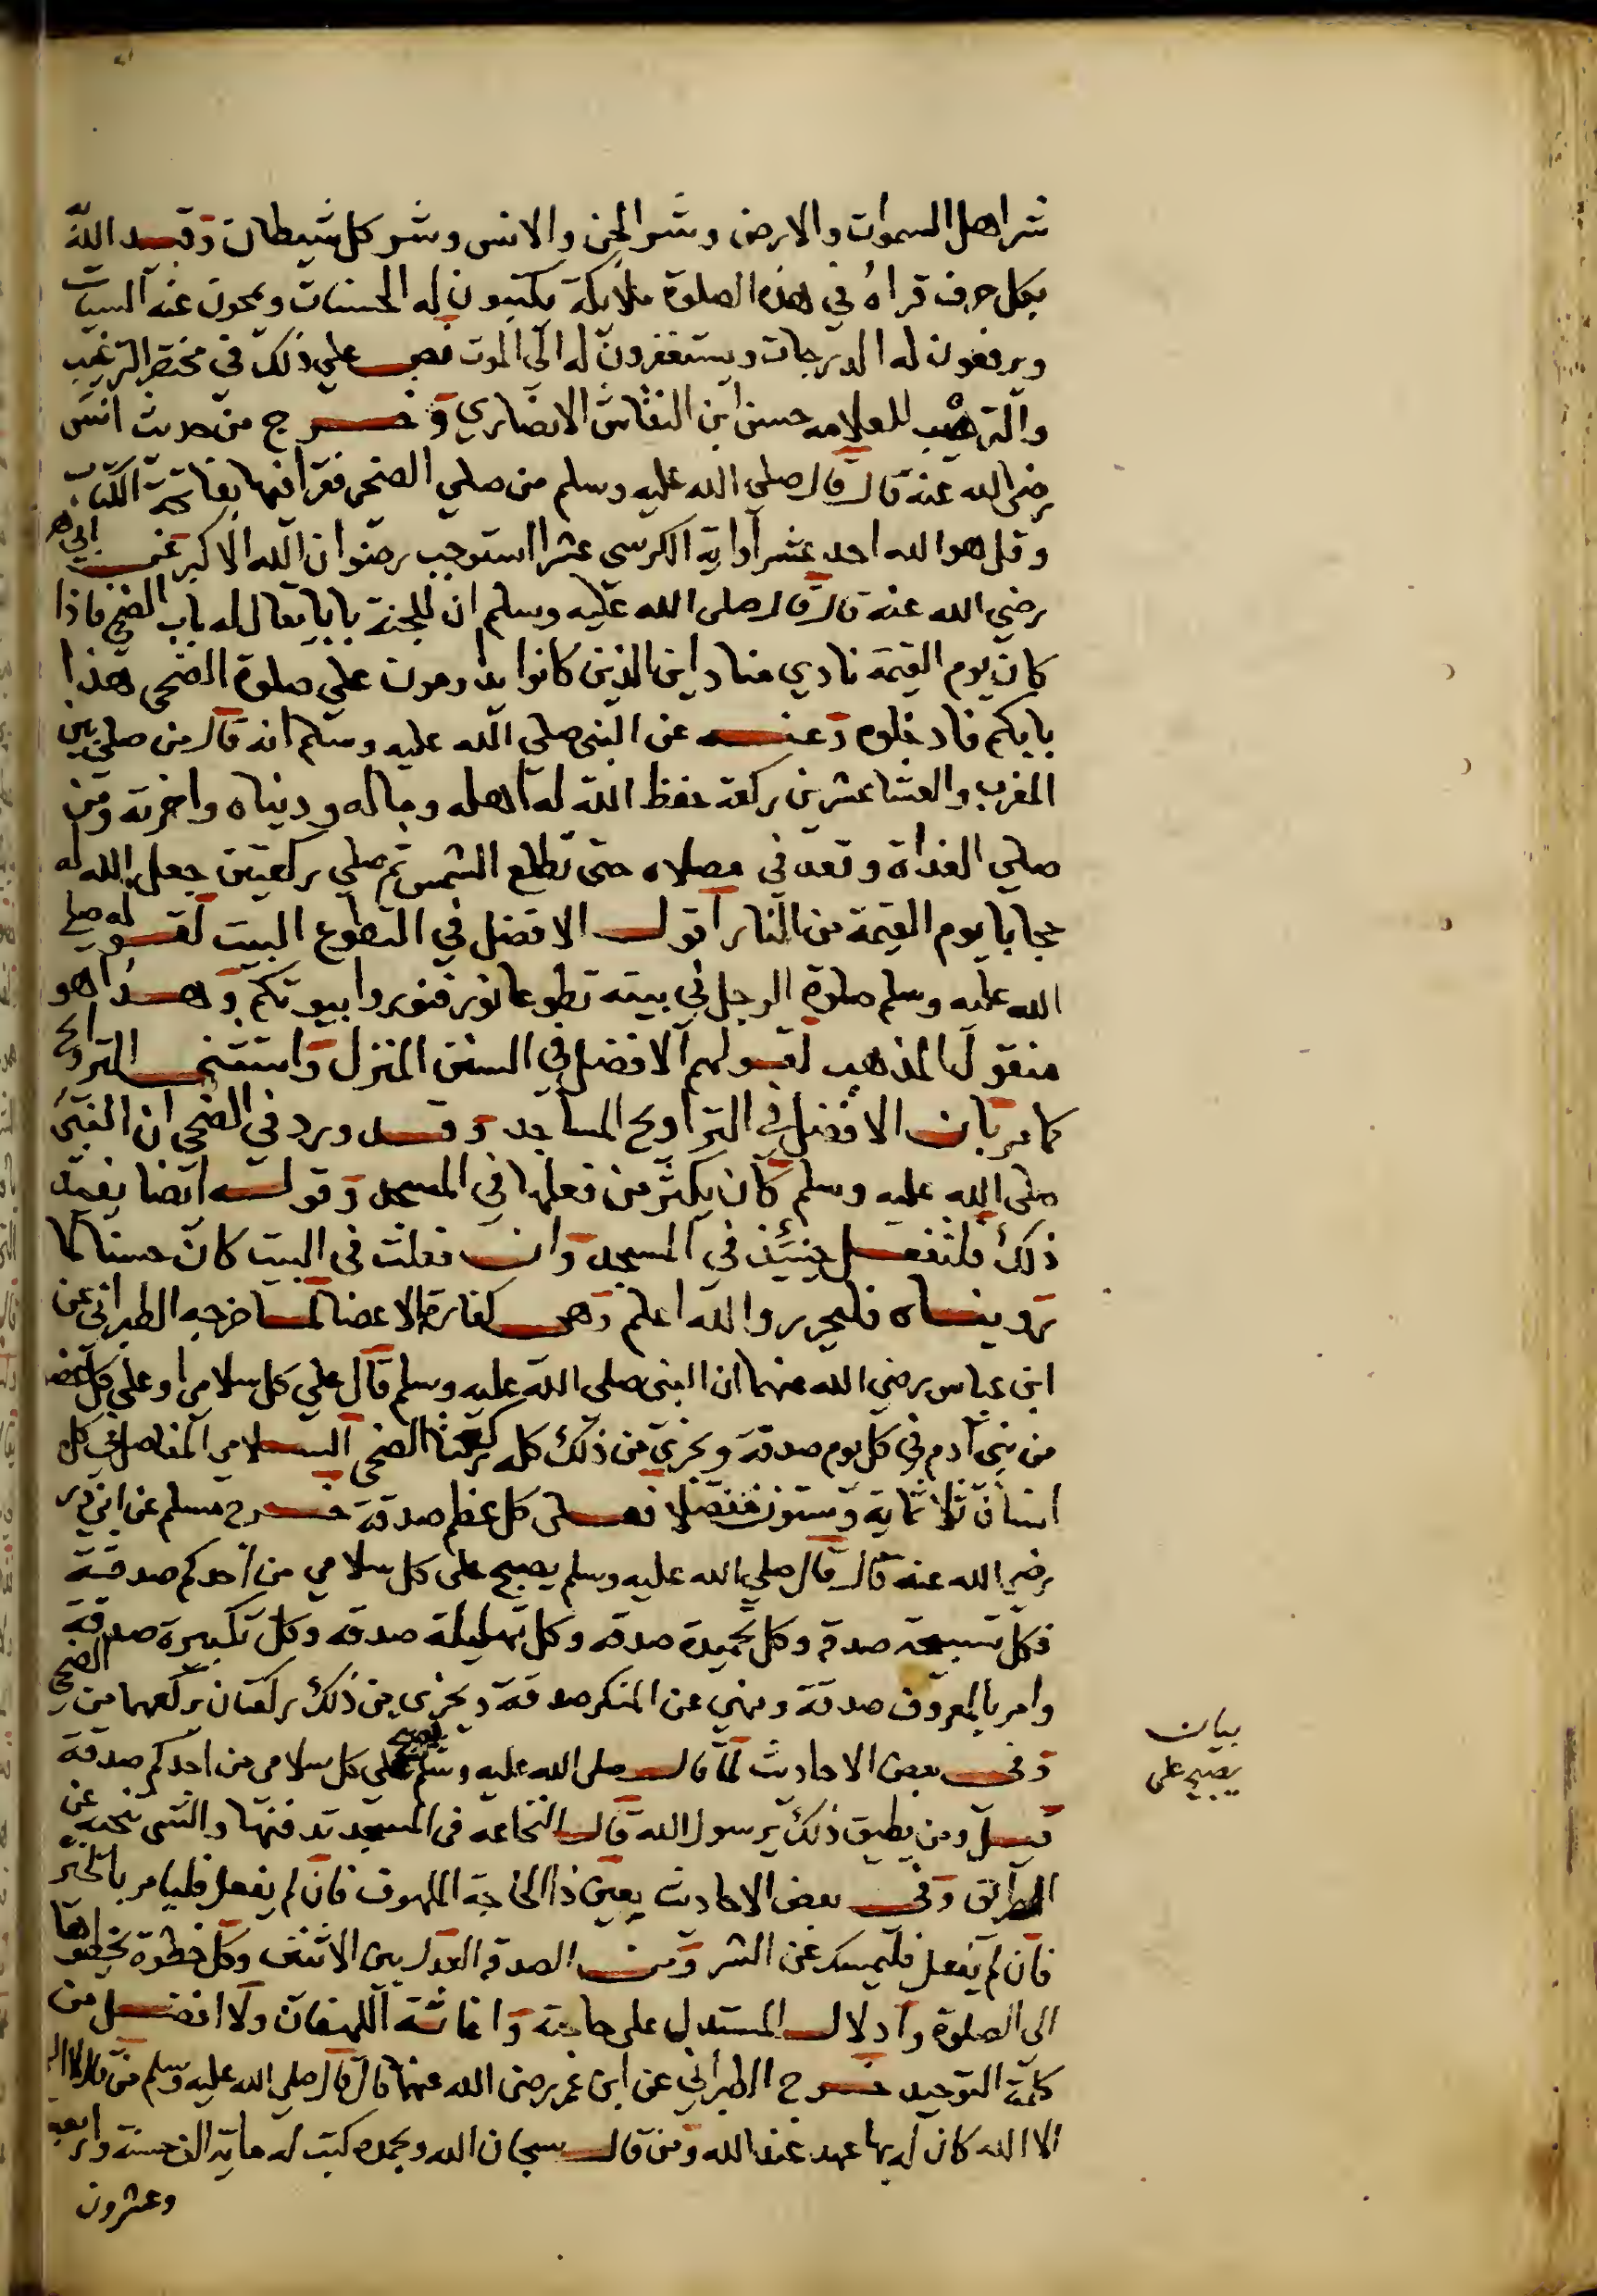 شر اهل السموات والارض وشر الجن والانس وشر كل شيطان وقيد الله
بكل حرف قراه في هذه الصلوة ملايكة يكتبون له الحسنات ويمحون عنه السيات
ويرفعون له الدرجات ويستغفرون له الى الموت نص على ذلك في مختصر الترغيب
والترهيب للعلامه حسن ابن النقاش الانصاري وخرج من حديث انس
رضى الله عنه قال قال صلى الله عليه وسلم من صلي الضحى فقرا فيها بفاتحة الكتاب
وقل هو الله احد عشرا واية الكرسى عشرا استوجب رضوان الله الاكبر عن ابي هر
رضي الله عنه قال قال صلى الله عليه وسلم ان للجنة بابا يقال له باب الضحى فاذا
كان يوم القيمة نادي مناد اين الذين كانوا يدومون على صلوة الضحى هذا
بابكم فادخلوه وعنه عن النبى صلي الله عليه وسلم انه قال من صلى بين
المغرب والعشا عشرين ركعة حفظ الله له اهله وماله ودنياه واخرته ومن
صلي الغداة وقعد في مصلاه حتى تطلع الشمس ثم صلي ركعتين جعل الله له
حجابا يوم القيمة من النار اقول الافضل في التطوع البيت لقوله صلى
الله عليه وسلم صلوة الرجل في بيته تطوعا نور فنوروا بيوتكم وهذا هو
منقول المذهب لقولهم الافضل في السنن المنزل واستثنى التراويح
كما مر بان الافضل في التراويح المساجد وقد ورد في الضحى ان النبى
صلى الله عليه وسلم كان يكثر من فعلها في المسجد وقوله ايضا يفيد
ذلك فلتفعل حينئذ في المسجد وان فعلت في البيت كان حسنا لما
رويناه فليحرر والله اعلم وهى كفارة الاعضا لما خرجه الطبرانى عن
ابن عباس رضي الله عنهما ان النبى صلى الله عليه وسلم قال علي كل سلامى او على كل عضو
من بنى آدم في كل يوم صدقة ويجزي من ذلك كله ركعتا الضحى السلامى المفاصل في كل
انسان ثلاثماية وستون مفصلا فعلى كل عظم صدقة خرج مسلم عن ابى ذر
رضي الله عنه قال قال صلي الله عليه وسلم يصبح على كل سلامي من احدكم صدقة
فكل تسبيحة صدقه وكل تحميدة صدقه وكل تهليلة صدقه وكل تكبيرة صدقة
وامر بالمعروف صدقة ونهي عن المنكر صدقة ويجزى من ذلك ركعتان يركعهما من الضحى
وفى بعض الاحاديث لما قال صلى الله عليه وسلم يصبح على كل سلامي من احدكم صدقة
قيل ومن يطيق ذلك يرسول الله قال النخاعه في المسجد تدفنها والشى تنحيه عن
الطريق وفى بعض الاحاديث يعين ذا الحاجة الملهوف فان لم يفعل فليامر بالخير
فان لم يفعل فليمسك عن الشر ومن الصدقه العدل بين الاثنين وكل خطوة تخطوها
الى الصلوة وادلال المستدل على حاجته واغاثة اللهفان ولا افضل من
كلمة التوحيد خرج الطبراني عن ابن عمر رضى الله عنهما قال قال صلى الله عليه وسلم من قال لا اله
الا الله كان له بها عهد عند الله ومن قال سبحان الله وبحمده كتبت له ماية الف حسنة واربعة
وعشرون
بيان
يصبح على